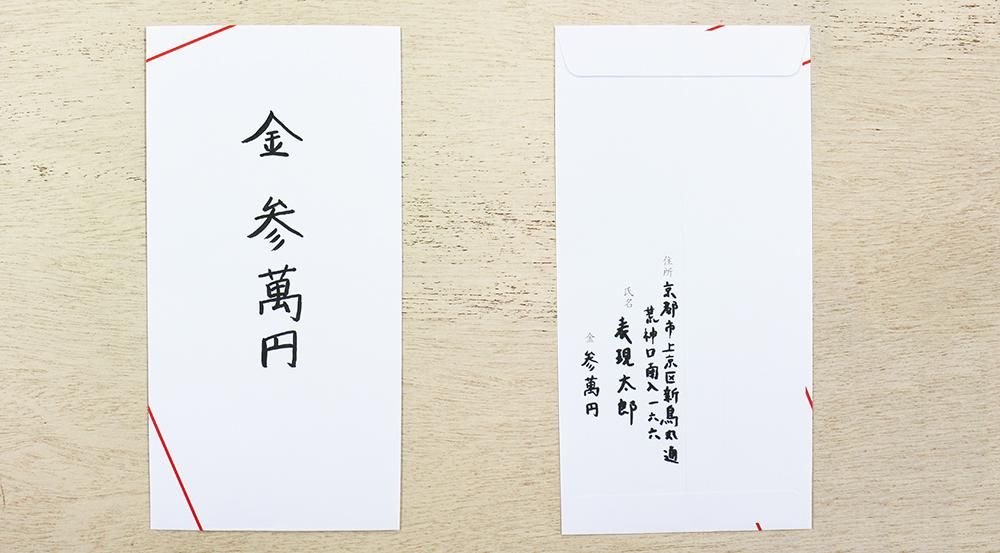 金 参萬円
住所 京都市上京区新烏丸通
荒神口南入一六六
氏名 表現太郎
金 参萬円